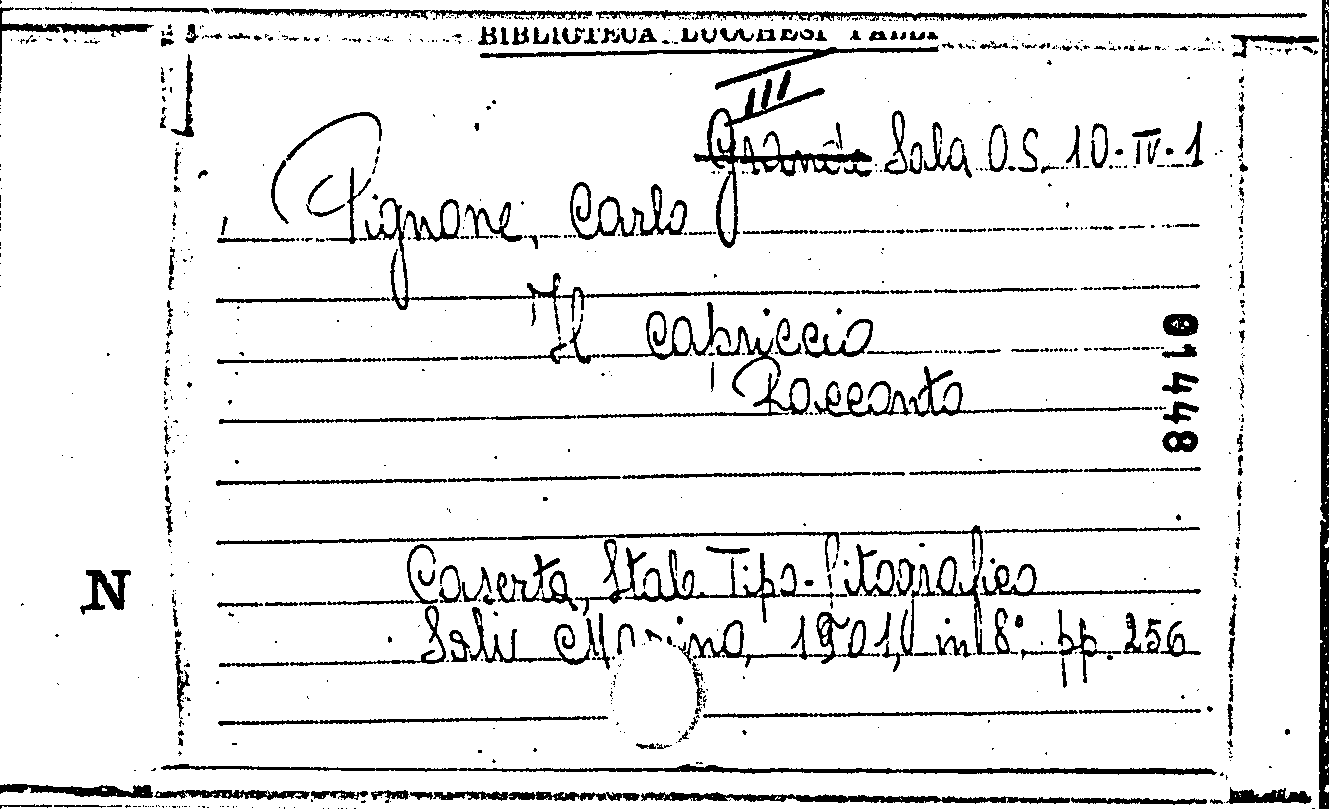 BIBLIOTECA LUCCHESI PALLI
III
Grande Sala O.S. 10-IV-1
Pignone, Carlo
Il capriccio
Racconto
01448
N
Caserta, Stab. Tipo-litografico
Marino, 1901, in 8°. pp. 256